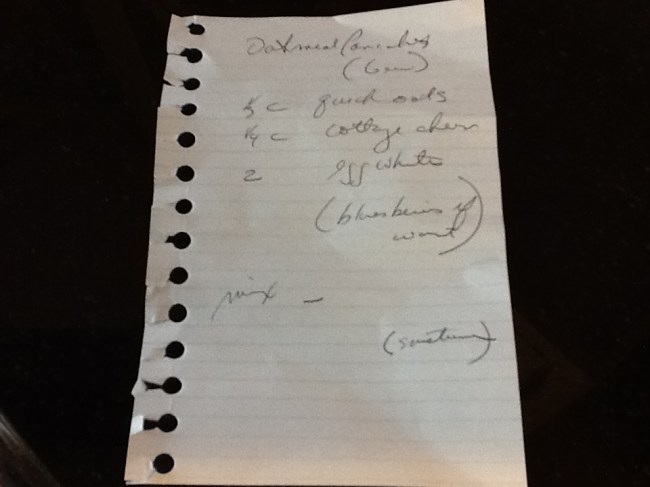 Oatmeal Pancakes
c quick oats
1/4 c cottage cheese
2 egg whites
(blueberries if
want)
mix –